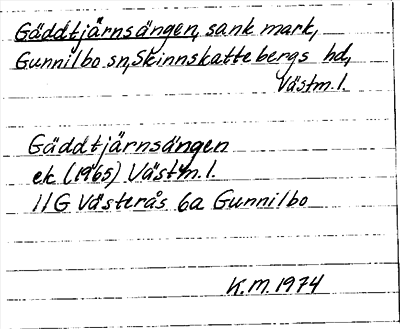 Gäddtjärnsängen, sank mark,
Gunnilbo sn, Skinnskattebergs hd,
Västm.l.
Gäddtjärnsängen
ek (1965) Västm.l.
11G Västerås 6a Gunnilbo
K.M. 1974